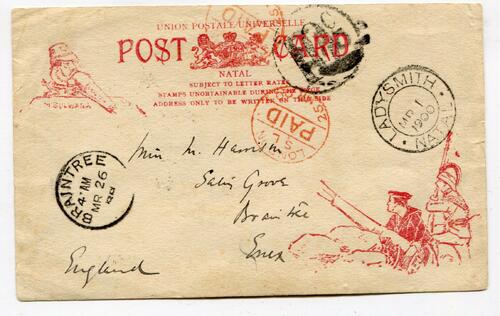 UNION POSTALE UNIVERSELLE
POST CARD
NATAL
SUBJECT TO LETTER RATE
STAMPS UNOBTAINABLE DURING THE SIEGE
ADDRESS ONLY TO BE WRITTEN ON THIS SIDE
BULWANA
LONDON S.L.
PAID
25
LADYSMITH
MR 1
1900
NATAL
BRAINTREE
4 AM
MR 26
Miss M. Harrison
Grove
Braintree
Essex
England